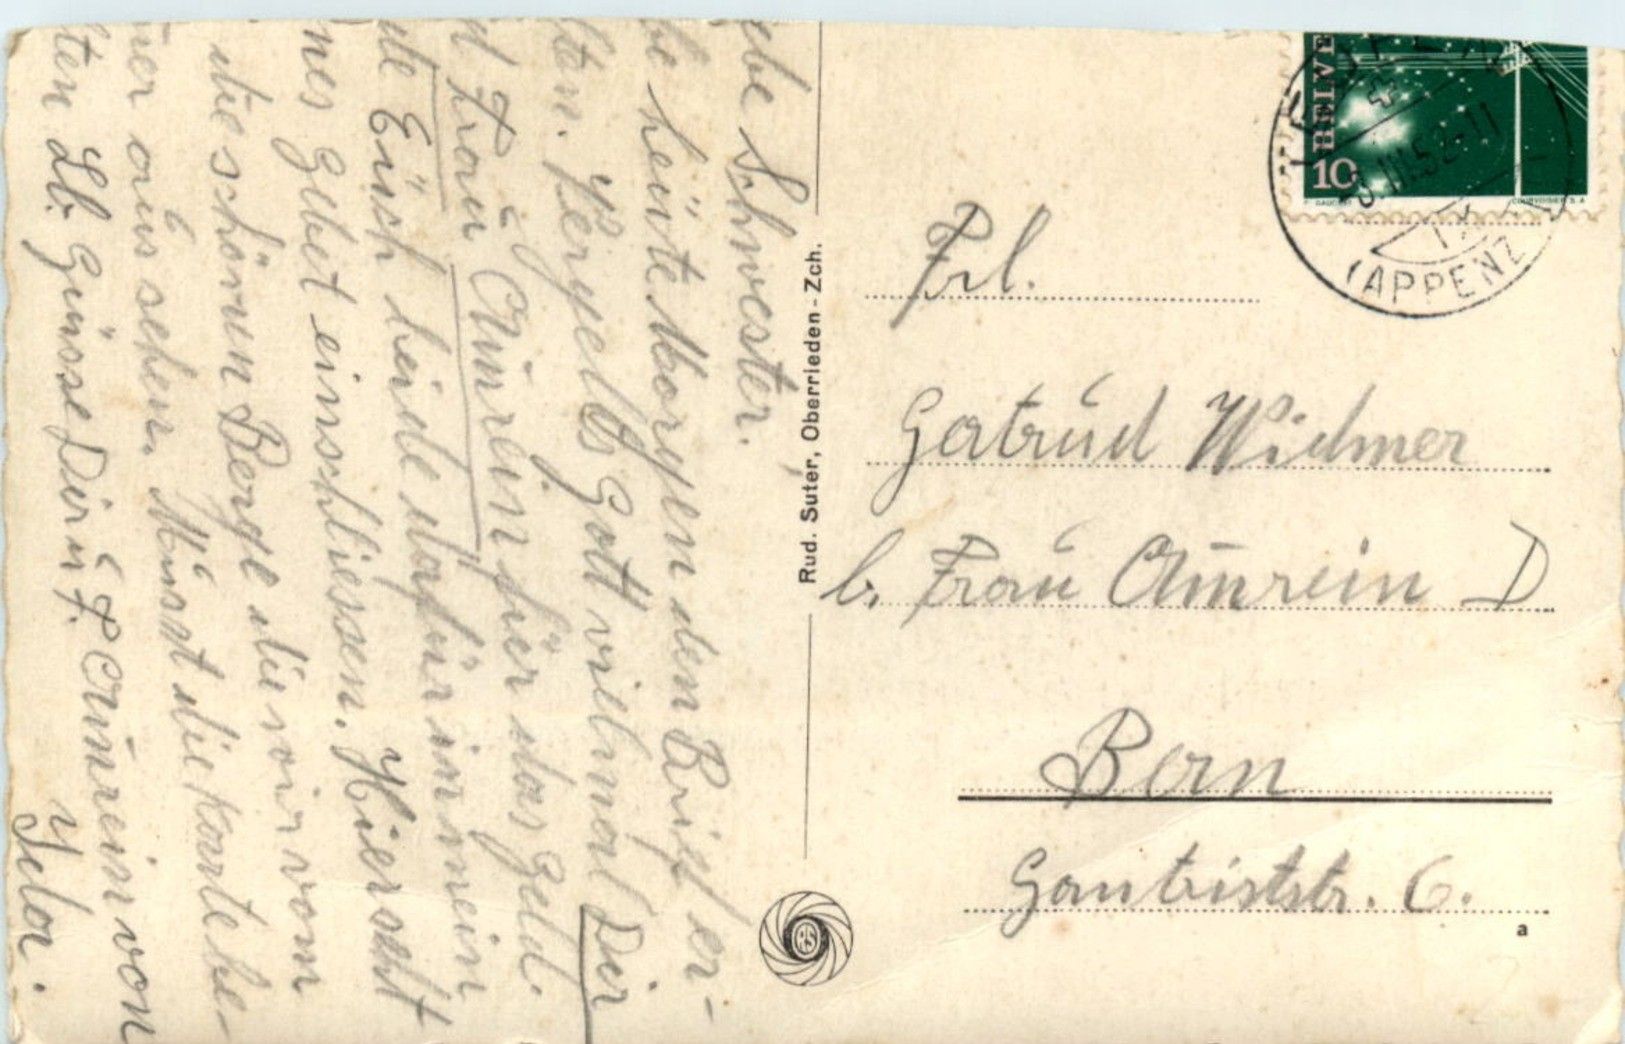 ebe Schwester.
be heute Morgen den Brief er-
ten. Vergellts Gott vielmal Dir
d Frau Amrein für das Geld.
de Eüch beide dafür in mein
nes Gebet einschliessen. Hier seht
die schönen Berge die wir vom
mer aus sehen. Müsst die Karte be-
ten Lb. Grüsse Dir u. F. Amrein von
Ida.
Rud. Suter, Oberrieden - Zch.
RS
HELVE
10
COURVOISIER S.A
III.52-11
(APPENZ
Frl.
Gertrud Widmer
b. Frau Amrein D
Bern
Gantriststr. 6.
a